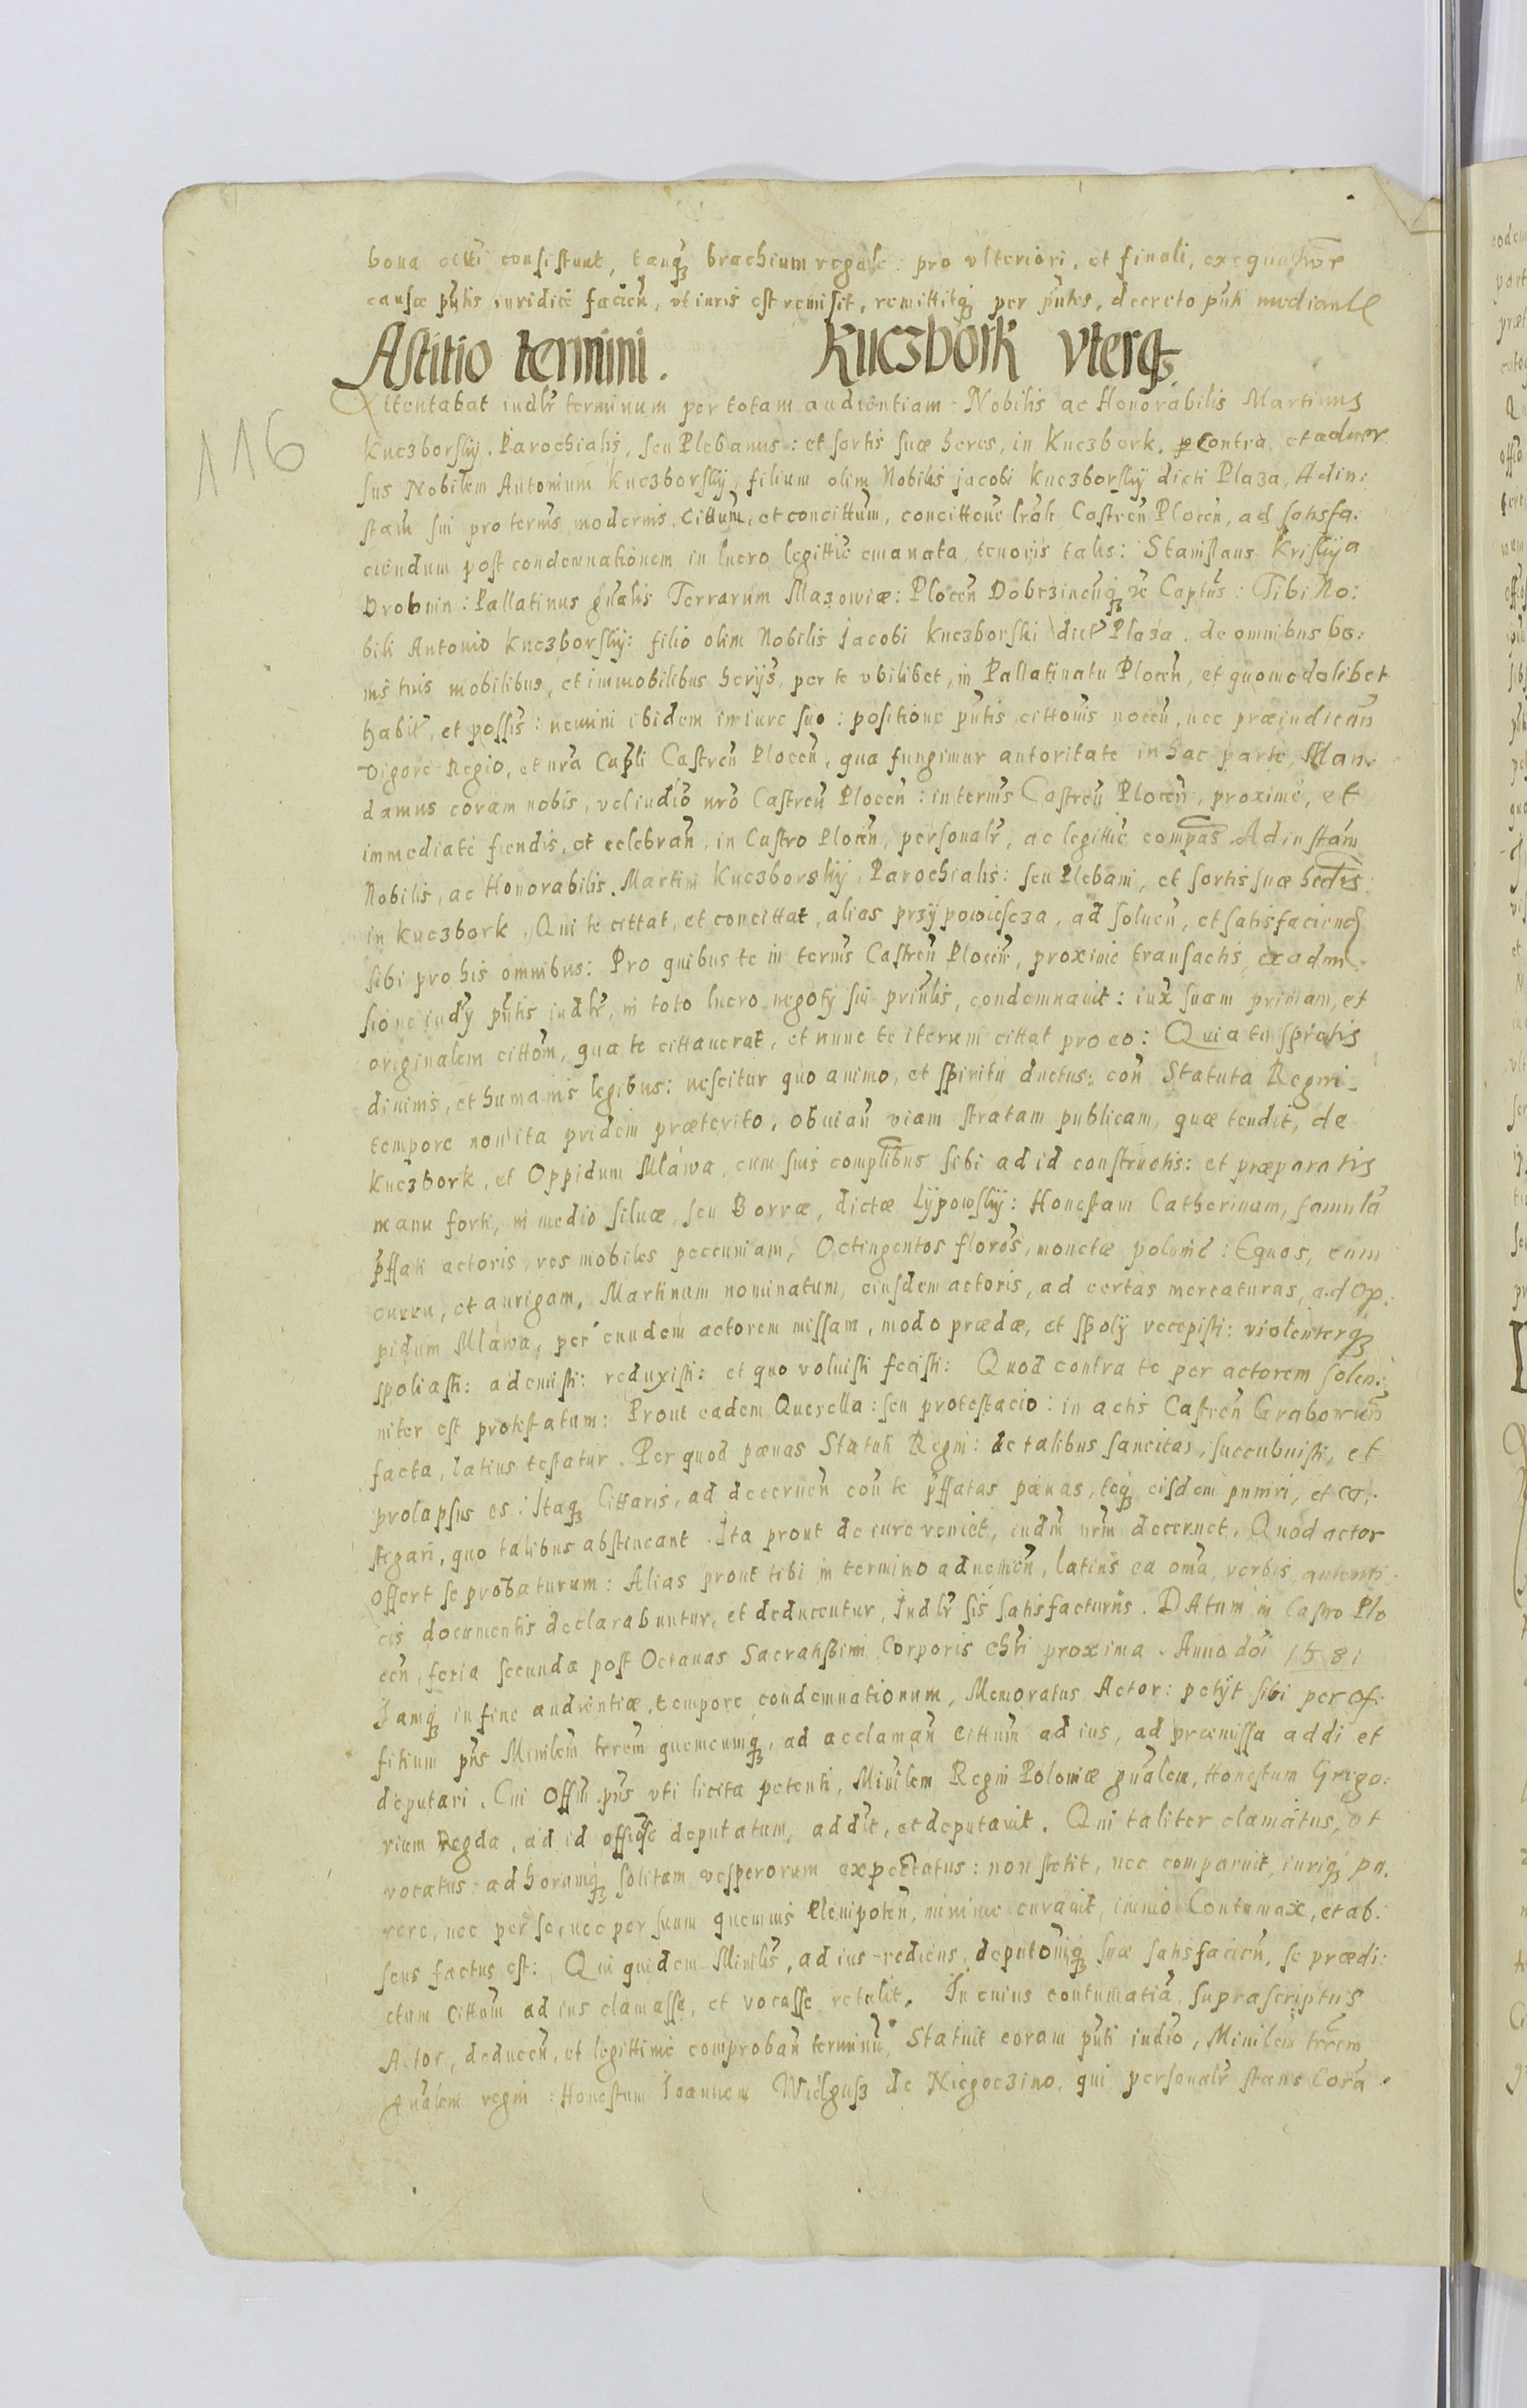 bona citti consistunt, tanqȝ brachium regale: pro vlteriori, et finali, exequutioē
causæ pñtis iuridicè facień, vt iuris est remisit, remittitqȝ per pñtes, decreto pñti mediante
Astitio termini. Kuczbork vterqȝ
Attentabat iudlr terminum per totam audientiam Nobilis ac Honorabilis Martinus
Kuczborskij. Parochialis, seu Plebanus: et sortis suæ heres, in Kuczbork, contra, et aduer
sus Nobilem Antonium Kuczborskij, filium olim Nobilis jacobi Kuczborskij dicti Plaza, Ad in:
stam̃ sui pro termis modernis, Cittum, et concittum, concittone lrali Castren̄ Plocen̄, ad satisfa:
ciendum post condemnationem in lucro legittie emanata, tenoris talis: Stanislaus Kriskij a
Drobnin: Pallatinus gñalis Terrarum Mazowiæ: Plocen̄ Dobrzinen̄qȝ zc Captus: Tibi No:
bili Antonio Kuczborskij: filio olim Nobilis Jacobi Kuczborski dicti Plaza. de omnibus bo:
nis tuis mobilibus, et immobilibus herijs, per te vbilibet, in Pallatinatu Plocen̄, et quomodolibet
habit, et possis: nemini ibidem in iure suo: positione pñtis cittonis nocen̄, nec præiudican̄
vigore Regio, et nr̄a Capli Castren̄ Plocen̄, qua fungimur autoritate in hac parte, Man.
damus coram nobis, vel iudio nr̄o Castren̄ Plocen̄: in termis Castren̄ Plocen̄, proximè, et
immediatè fiendis, et celebran̄, in Castro Plocen̄, personalr, ac legittie compas Ad instam̃
Nobilis, ac Honorabilis. Martini Kuczborskij, Parochialis: seu Plebani, et sortis suæ hedis
in Kuczbork. Qui te cittat, et concittat, alias przÿpowiescza, ad soluen̄, et satisfaciend
sibi pro his omnibus: Pro quibus te in termis Castren̄ Plocen̄, proxime transactis, ex admi
sione iudy pñtis iudlr, in toto lucro negotij sui prinlis, condemnauit: iux suam primam, et
originalem cittom̃, qua te cittauerat, et nunc te iterum cittat pro eo: Quia tu spretis
diuinis, et humanis legibus: nescitur quo animo, et spiritu ductus: con̄ Statuta Regni
tempore non ita pridem præterito, obuian̄ viam stratam publicam, quæ tendit, de
Kuczbork, et Oppidum Mláwa, cum suis complibus sibi ad id constructis: et præparatis
manu forti, in medio siluæ, seu Borræ, dictæ Lÿpowskÿ: Honestam Catherinam, famulã
pffati actoris, res mobiles pecuniam, Octingentos floros, monetæ polonic: Equos, cum
curru, et aurigam, Martinum nominatum, eiusdem actoris, ad certas mercaturas, ad Op:
pidum Mláwa, per eundem actorem missam, modo prædæ, et spolij recepisti: violenterqȝ
spoliasti: ademisti: reduxisti: et quo voluisti fecisti: Quod contra te per actorem solen:
niter est protestatum: Prout eadem Querella: seu protestacio: in actis Castren̄ Grabowen̄
facta, latius testatur. Per quod pænas Statuti Regni: de talibus sancitas, succubuisti, et
prolapsus es: Itaqȝ Cittaris, ad decernen̄ con̄ te pffatas pænas, teqȝ eisdem puniri, et ca:
stigari, quo talibus abstineant. Ita prout de iure veniet, iudm̃ nrm̃ decernet. Quod actor
offert se probaturum: Alias prout tibi in termino aduenien̄, latius ea oma, verbis, autenti
cis documentis declarabuntur, et deducentur, Iudlr sis satisfacturus. DAtum in Castro Plo
cen̄, feria secunda post Octauas Sacratissimi Corporis chri proxima. Anno doi 1581
Iamqȝ in fine audientiæ, tempore condemnationum, Memoratus Actor: petijt sibi per of:
ficium pñs Minilem̃ terrem̃ quemcumqȝ, ad acclaman̄ Cittum ad ius, ad præmissa addi et
deputari. Cui Offm̃ pñs vti licita petenti, Minilem Regni Poloniæ gñalem, Honestum Grego:
rium Regda, ad id offiose deputatum, addit, et deputauit. Qui taliter clamatus, et
vocatus: ad horamqȝ solitam vesperorum expectatus: non stetit, nec comparuit, iuriqȝ pa.
rere, nec per se, nec per suum quemuis Plenipoten̄, minime curauit, immo Contumax, et ab:
sens factus est: Qui quidem Minilis, ad ius rediens, deputoniqȝ suæ satisfacien̄, se prædi:
ctum Cittum ad ius clamasse, et vocasse retulit. In cuius contumatiã, suprascriptus
Actor, deducen̄, et legittime comproban̄ terminũ, Statuit coram pñti iudio, Minilem terrem̃
Gñalem regni: Honestum Ioannem Wielgusz de Niegoczino, qui personalr stans Corã
116